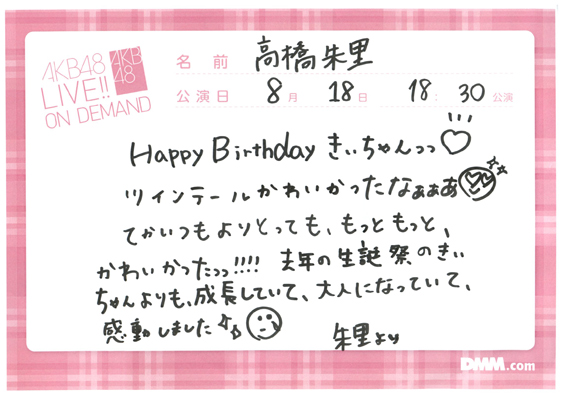 AKB48
LIVE!!
ON DEMAND
AKB
48
名前 高橋朱里
公演日 8月 18日 18:30 公演
Happy Birthday きぃちゃんっっ♡
ツインテールかわいかったなぁぁあ
てかいつもよりとっても、もっともっと、
かわいかったっっ!!!! 去年の生誕祭のきぃ
ちゃんよりも、成長していて、大人になっていて、
感動しました♪
朱里より
DMM.com